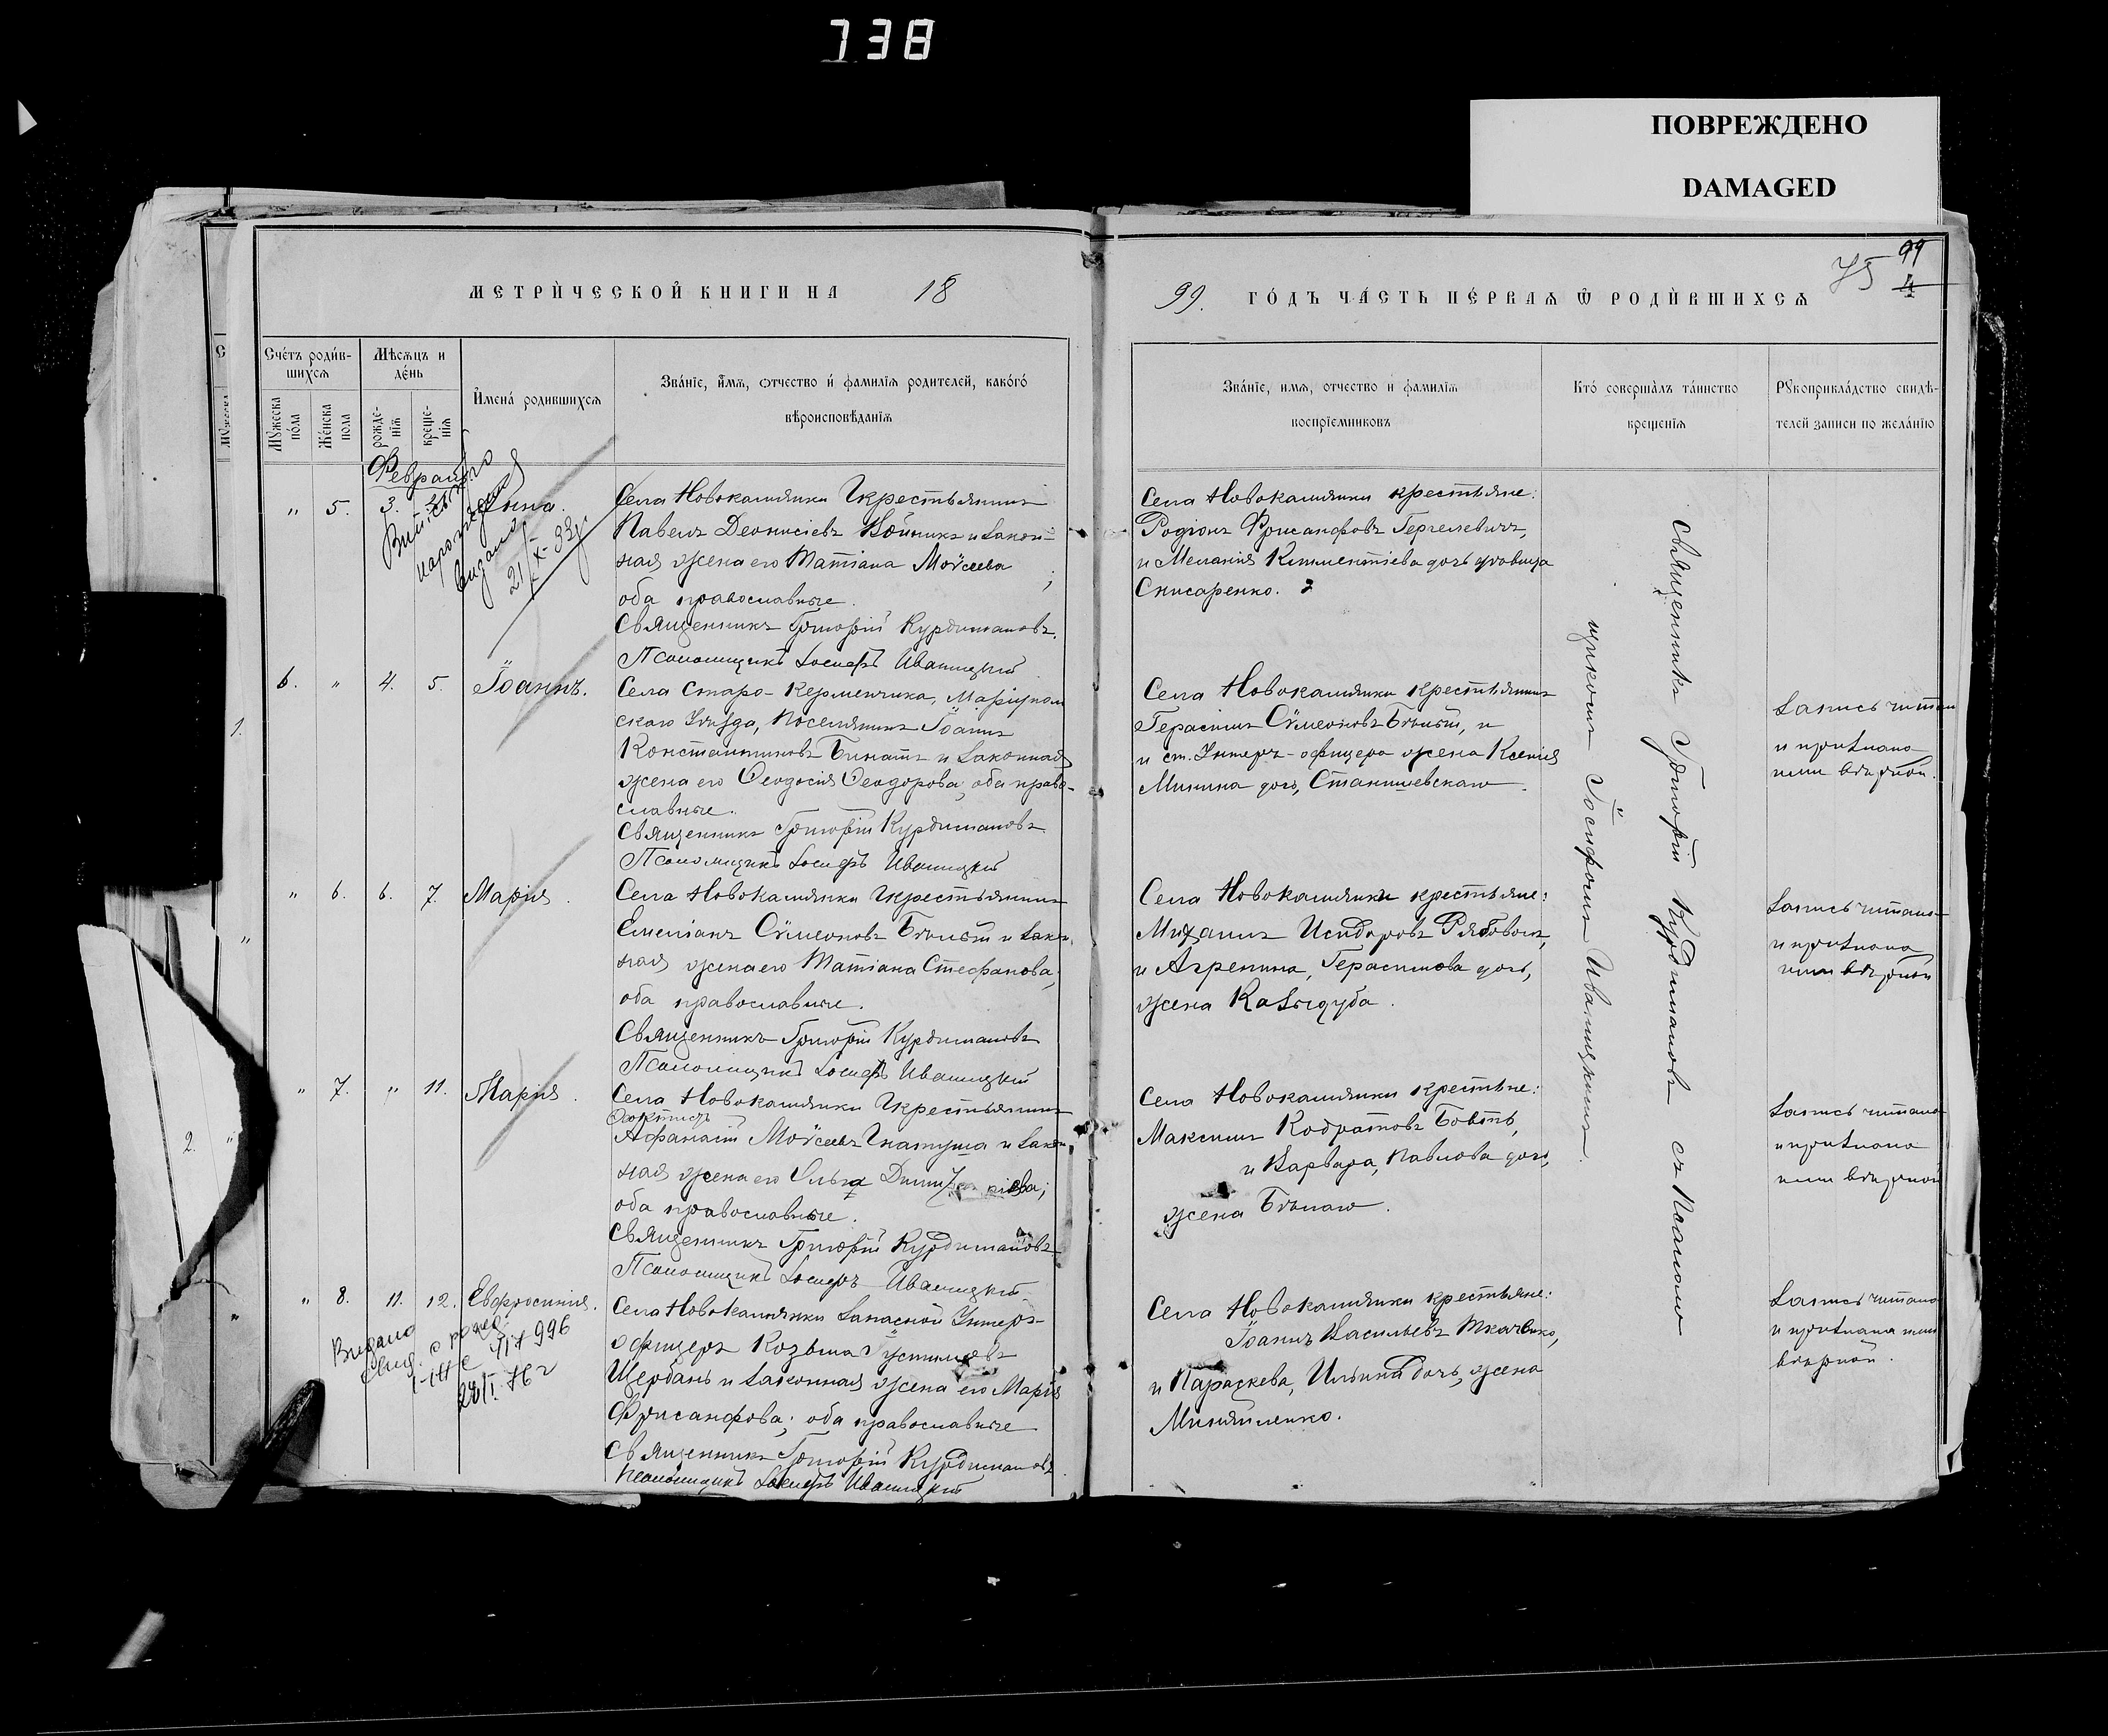 738
ПОВРЕЖДЕНО
DAMAGED
75
99
МЕТРИ́ЧЕСКОЙ КНИГИ НА 18
99. ГО́ДЪ ЧА́СТЬ ПЕ́РВАѦ Ѿ РОДИ́ВШИХСѦ
Сче́тъ роди́в-
шихсѧ
Мѣсѧцъ и
де́нь
И́мена́ родившихсѧ
Зва́нїе, и́мѧ, отчество и́ фамилїѧ родителей, како́го́
вѣроисповѣданїѧ
Мꙋжеска
по́ла
Же́нска
пола
рожде-
нїѧ
креще-
нїѧ
Зва́нїе, имѧ, отчество и фамилїѧ
воспрїемниковъ
Кто́ соверша́лъ та́инство
крещенїѧ
Рꙋкоприкла́дство свидѣ-
телей записи по жела́нїю
Февраль
" 5. 3. Анна.
видано
21/X-33р
Села Новокаменки крестьянинъ
Павелъ Деонисіевъ Койника и закон-
ная жена его Татіана Моѵсеева;
оба православные.
Священникъ Григорій Курдимановъ.
Псаломщикъ Іосифъ Иваницкій
Села Новокаменки крестьяне:
Родіонъ Фрисанфовъ Гергелевичъ,
и Меланія Климентіева дочь вдовица
Снисаренко.
6. " 4. 5. Іоаннъ.
Села Старо-Керменчика, Маріуполь
скаго Уѣзда, поселянинъ Іоаннъ
Константиновъ Бинатъ и законная
жена его Ѳеодосія Ѳеодорова, оба право-
славные.
Священникъ Григорій Курдимановъ
Псаломщикъ Іосифъ Иваницкій
Села Новокаменки крестьянинъ
Герасимъ Сѵмеоновъ Бѣлый, и
и ст. Унтеръ-офицера жена Ксенія
Минина дочь, Станишевскаго.
Запись читана
и признана
ими вѣрной.
" 6. 6. 7. Марія.
Села Новокаменки крестьянинъ
Емеліанъ Сѵмеоновъ Бѣлый и закон-
ная жена его Татіана Стефанова,
оба православные.
Священникъ Григорій Курдимановъ
Псаломщикъ Іосифъ Иваницкій
Села Новокаменки крестьяне:
Михаилъ Исидоровъ Рябоволъ,
и Агрепина, Герасимова дочь,
жена Казидуба.
Запись читана
и признана
ими вѣрной
" 7. " 11. Марія.
Села Новокаменки крестьянинъ
Афанасій Моѵсеевъ и закон-
ная жена его Ольга
оба православные.
Священникъ Григорій Курдимановъ
Псаломщикъ Іосифъ Иваницкій
Села Новокаменки крестьяне:
Максимъ Кодратовъ Бовтъ,
и Варвара, Павлова дочь,
жена Бѣлаго.
Запись читана
и признана
ими вѣрной
" 8. 11. 12. Евфросинія.
Видано
свид. о рожд.
996
28/I. 76 г
Села Новокаменки запасной Унтеръ-
офицеръ Козьма Іустиновъ
Щербань и законная жена его Марія
Фрисанфова; оба православные
Священникъ Григорій Курдимановъ.
Псаломщикъ Іосифъ Иваницкій
Села Новокаменки крестьяне:
Іоаннъ Васильевъ Ткаченко,
и Параскева, Ильина дочь, жена
Миняйленко.
Запись читана
и признана ими
вѣрной.
Священникъ Григорій Курдимановъ съ Псалом-
щикомъ Іосифомъ Иваницкимъ.
1.
2.